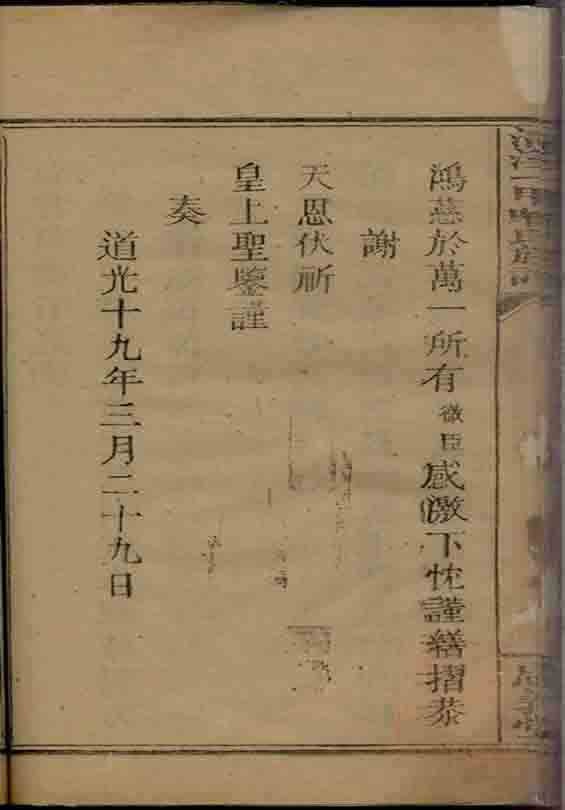 鴻慈於萬一所有微臣感激下忱謹繕摺恭
謝
天恩伏祈
皇上聖鑒謹
奏
道光十九年三月二十九日